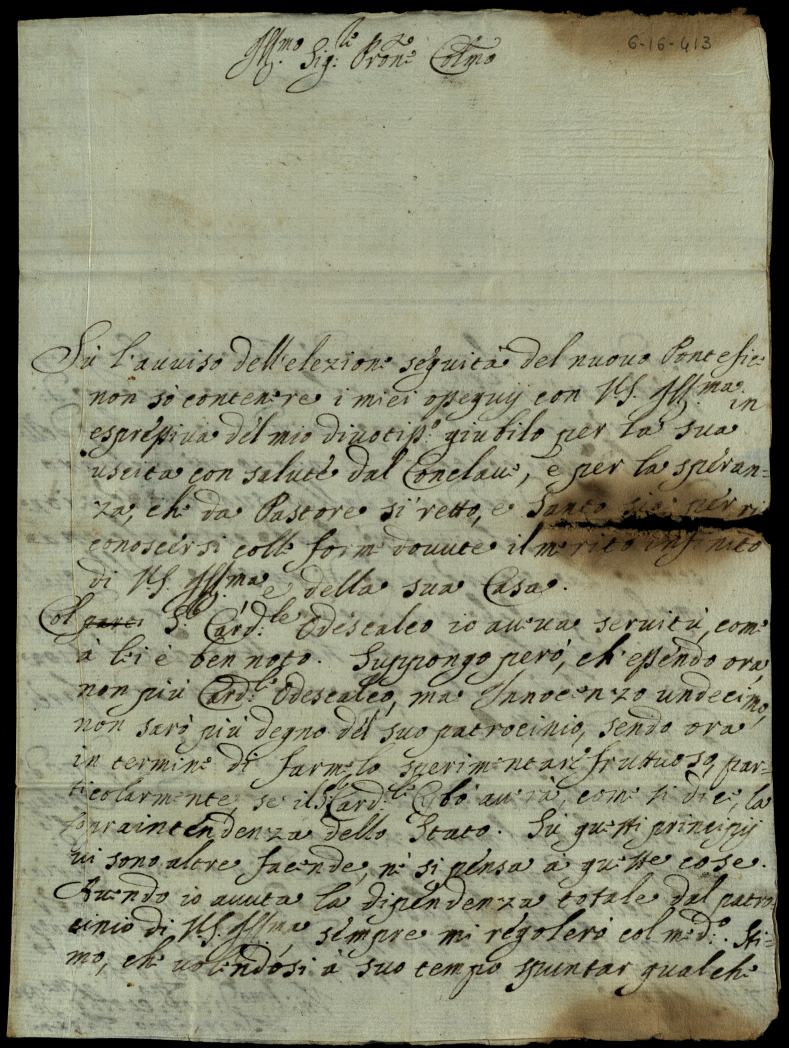 6-16-413
Ill.mo Sig.re Pron.e Col.mo
Sù l'auuiso dell'elezione seguita del nuouo Pontefice
non sò contenere i miei ossequij con VS. Ill.ma in
espressiua del mio diuotiss.o giubilo per la sua
uscita con salute dal Conclaue, e per la speran=
za, che da Pastore si retto, e Santo sia per ri
conoscersi colle forme douute il merito infinito
di VS. Ill.ma e della sua Casa.
Col S.r Card.le Odescalco io aueua seruitù, come
à lei è ben noto. Suppongo però, ch'essendo ora
non più Card.le Odescalco, ma Innocenzo undecimo,
non sarò più degno del suo patrocinio, sendo ora
in termine di farmelo sperimentare fruttuoso, par=
ticolarmente, se il S.r Card.le Cibò auerà, come si dice, la
sopraintendenza dello Stato. Sù questi principij
ui sono altre facende, nè si pensa à queste cose.
Auendo io auuta la dipendenza totale dal patro
cinio di VS. Ill.ma sempre mi regolerò col med.o. Sti=
mo, che uolendosi à suo tempo spuntar qualche